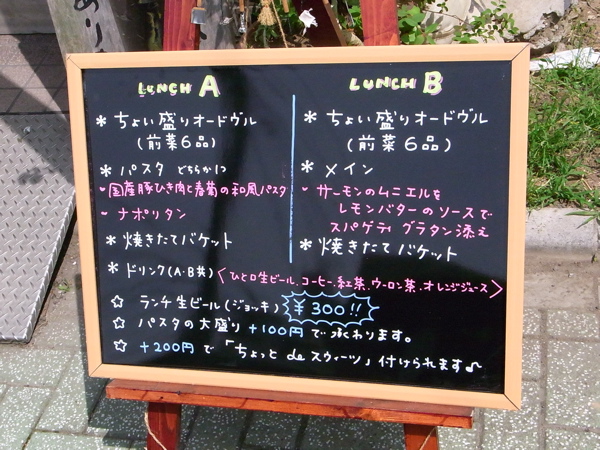 LUNCH A
* ちょい盛りオードヴル
(前菜6品)
* パスタ どちらか1つ
- 国産豚ひき肉と春菊の和風パスタ
- ナポリタン
* 焼きたてバケット
LUNCH B
* ちょい盛りオードヴル
(前菜6品)
* メイン
- サーモンのムニエルを
レモンバターのソースで
スパゲティグラタン添え
* 焼きたてバケット
* ドリンク(A・B共)〈ひと口生ビール、コーヒー、紅茶、ウーロン茶、オレンジジュース〉
☆ ランチ生ビール(ジョッキ) ¥300!!
☆ パスタの大盛り +100円で承わります。
☆ +200円で「ちょっと de スウィーツ」付けられます♪